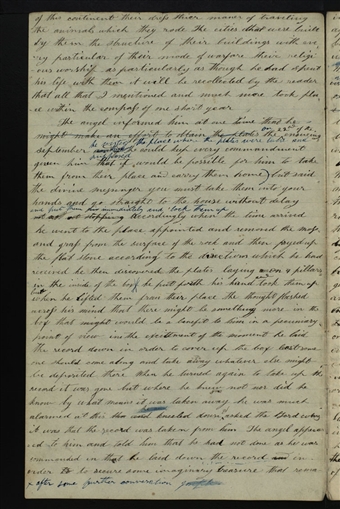 of this continent their dress their maner of traveling
the animals which they rode The cities that were built
by them the structure of their buildings with eve
ry particular of their mode of warfare their relig
ious worship as particularly as though he had spent
his life with them it will be recollected by the reader
that all that I mentioned and much more took pla
ce within the compass of one short year
The angel informed him at one time that he
might make an effort to obtain the plates on 22nd of the ensueing
september
he visited the place where the plates were laid and
he would keep every commandment
supposed
given him that it would be possible for him to take
them from their place and carry them home but said
the divine messenger you must take them into your
hands and go straight to the house without delay
and put them in immediately and lock them up
stopping Accordingly when the time arrived
he went to the place appointed and removed the moss
and grass from the surface of the rock and then pryed up
the flat stone according to the directions which he had
received he then discovered the plates laying on 4 pillars
in the inside of the box he put forth his hand took them up
but when he lifted them from their place the thought flashed
across his mind that there might be something more in the
box that might would be a benefit to him in a pecuniary
point of view in the excitement of the moment he laid
the record down in order to cover up the box least some
one should come along and take away whatever else might
be deposited there when he turned again to take up the
record it was gone but where he knew not nor did he
know by what means it was taken away he was much
alarmed at this kneeled down asked the Lord why
it was that the record was taken from him The angel appear
ed to him and told him that he had not done as he was
commanded in that he laid down the record in
order to secure some imaginary treasure that rema
after some further conversation